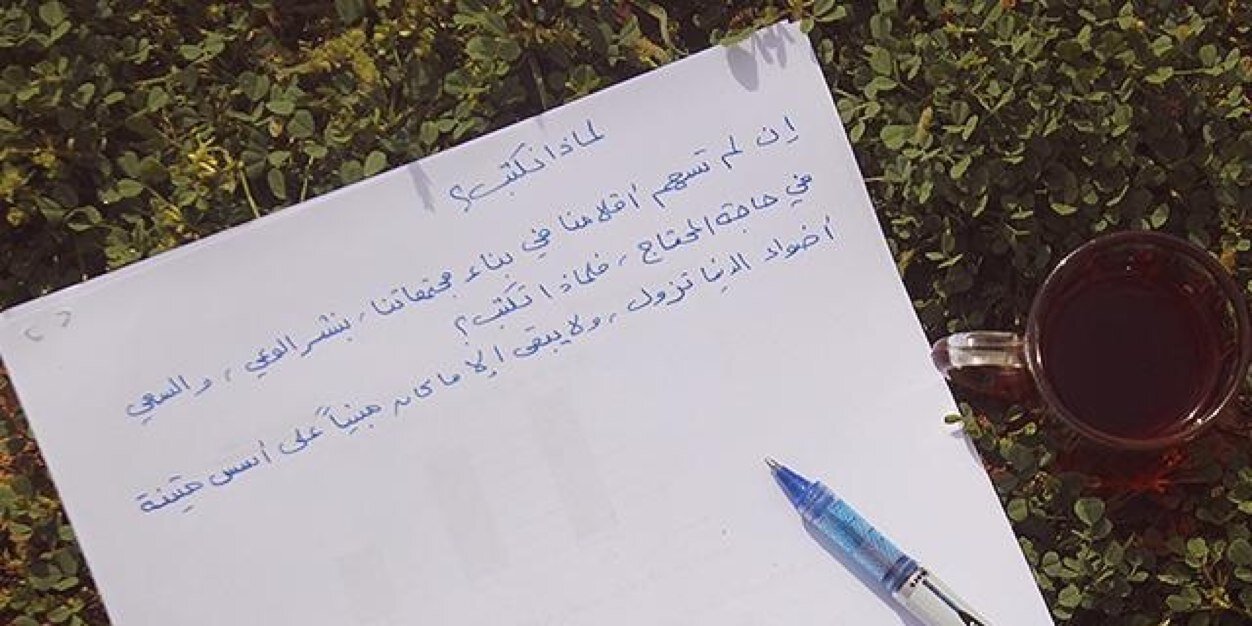 لماذا نكتب؟
إن لم تسهم أقلامنا في بناء مجتمعاتنا، بنشر الوعي، والسعي
في حاجة المحتاج، فلماذا نكتب؟
أضواء الدنيا تزول، ولا يبقى إلا ما كان مبنياً على أسس متينة